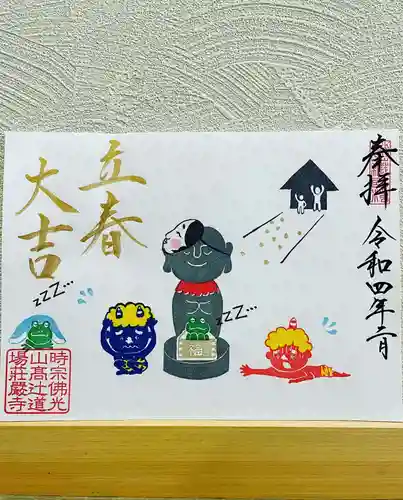 奉拝
令和四年二月
立春
大吉
zzz...
zzz...
福
時宗佛光
山高辻道
場荘厳寺